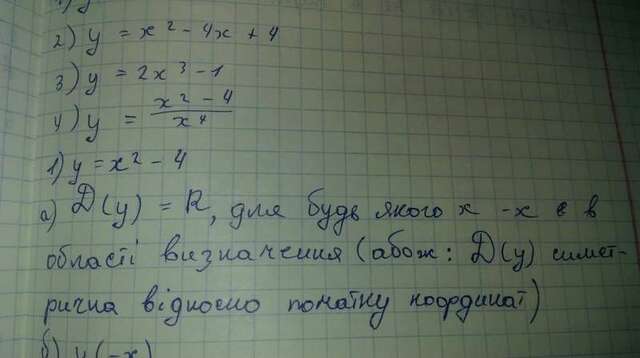 1) y
2) y = x² - 4x + 4
3) y = 2x³ - 1
4) y = (x² - 4)/x⁴
1) y = x² - 4
а) D(y) = R, для будь якого x -x є в
області визначення (абож: D(y) симет-
рична відносно початку координат)
б) y(-x)